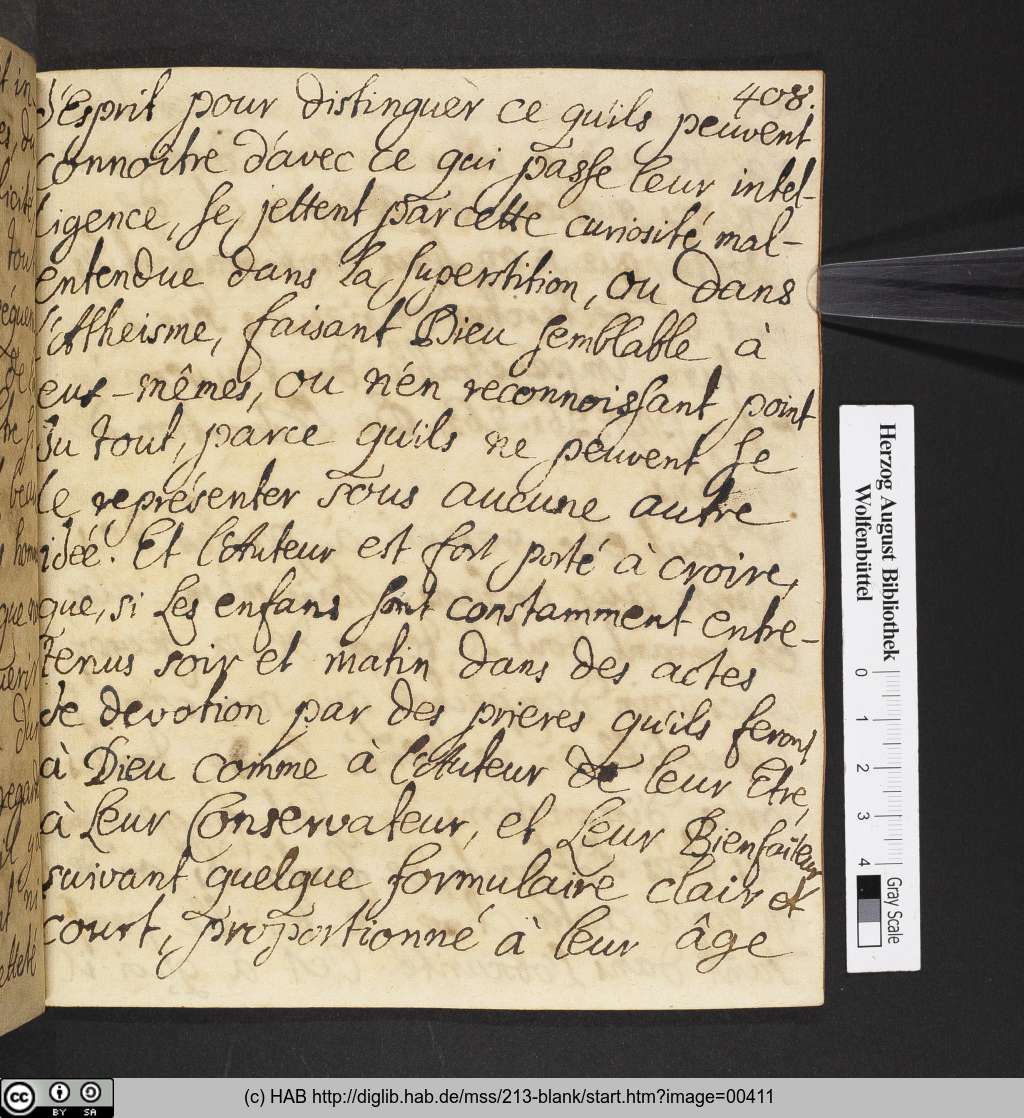 408.
d'Esprit pour distinguer ce qu'ils peuvent
connoître d'avec ce qui passe leur intel-
ligence, se jettent par cette curiosité mal-
entendue dans la superstition, ou dans
l'Atheisme, faisant Dieu semblable à
eux-mêmes, ou n'en reconnoissant point
du tout, parce qu'ils ne peuvent se
le représenter sous aucune autre
idée. Et l'Auteur est fort porté à croire,
que, si Les enfans sont constamment entre-
tenus soir et matin dans des actes
de devotion par des prieres qu'ils feront
à Dieu comme à l'Auteur de leur Etre,
à Leur Conservateur, et Leur Bienfaiteur
suivant quelque formulaire clair et
court, proportionné à leur âge
Herzog August Bibliothek
Wolfenbüttel
0 1 2 3 4
Gray Scale
cc BY SA
(c) HAB http://diglib.hab.de/mss/213-blank/start.htm?image=00411